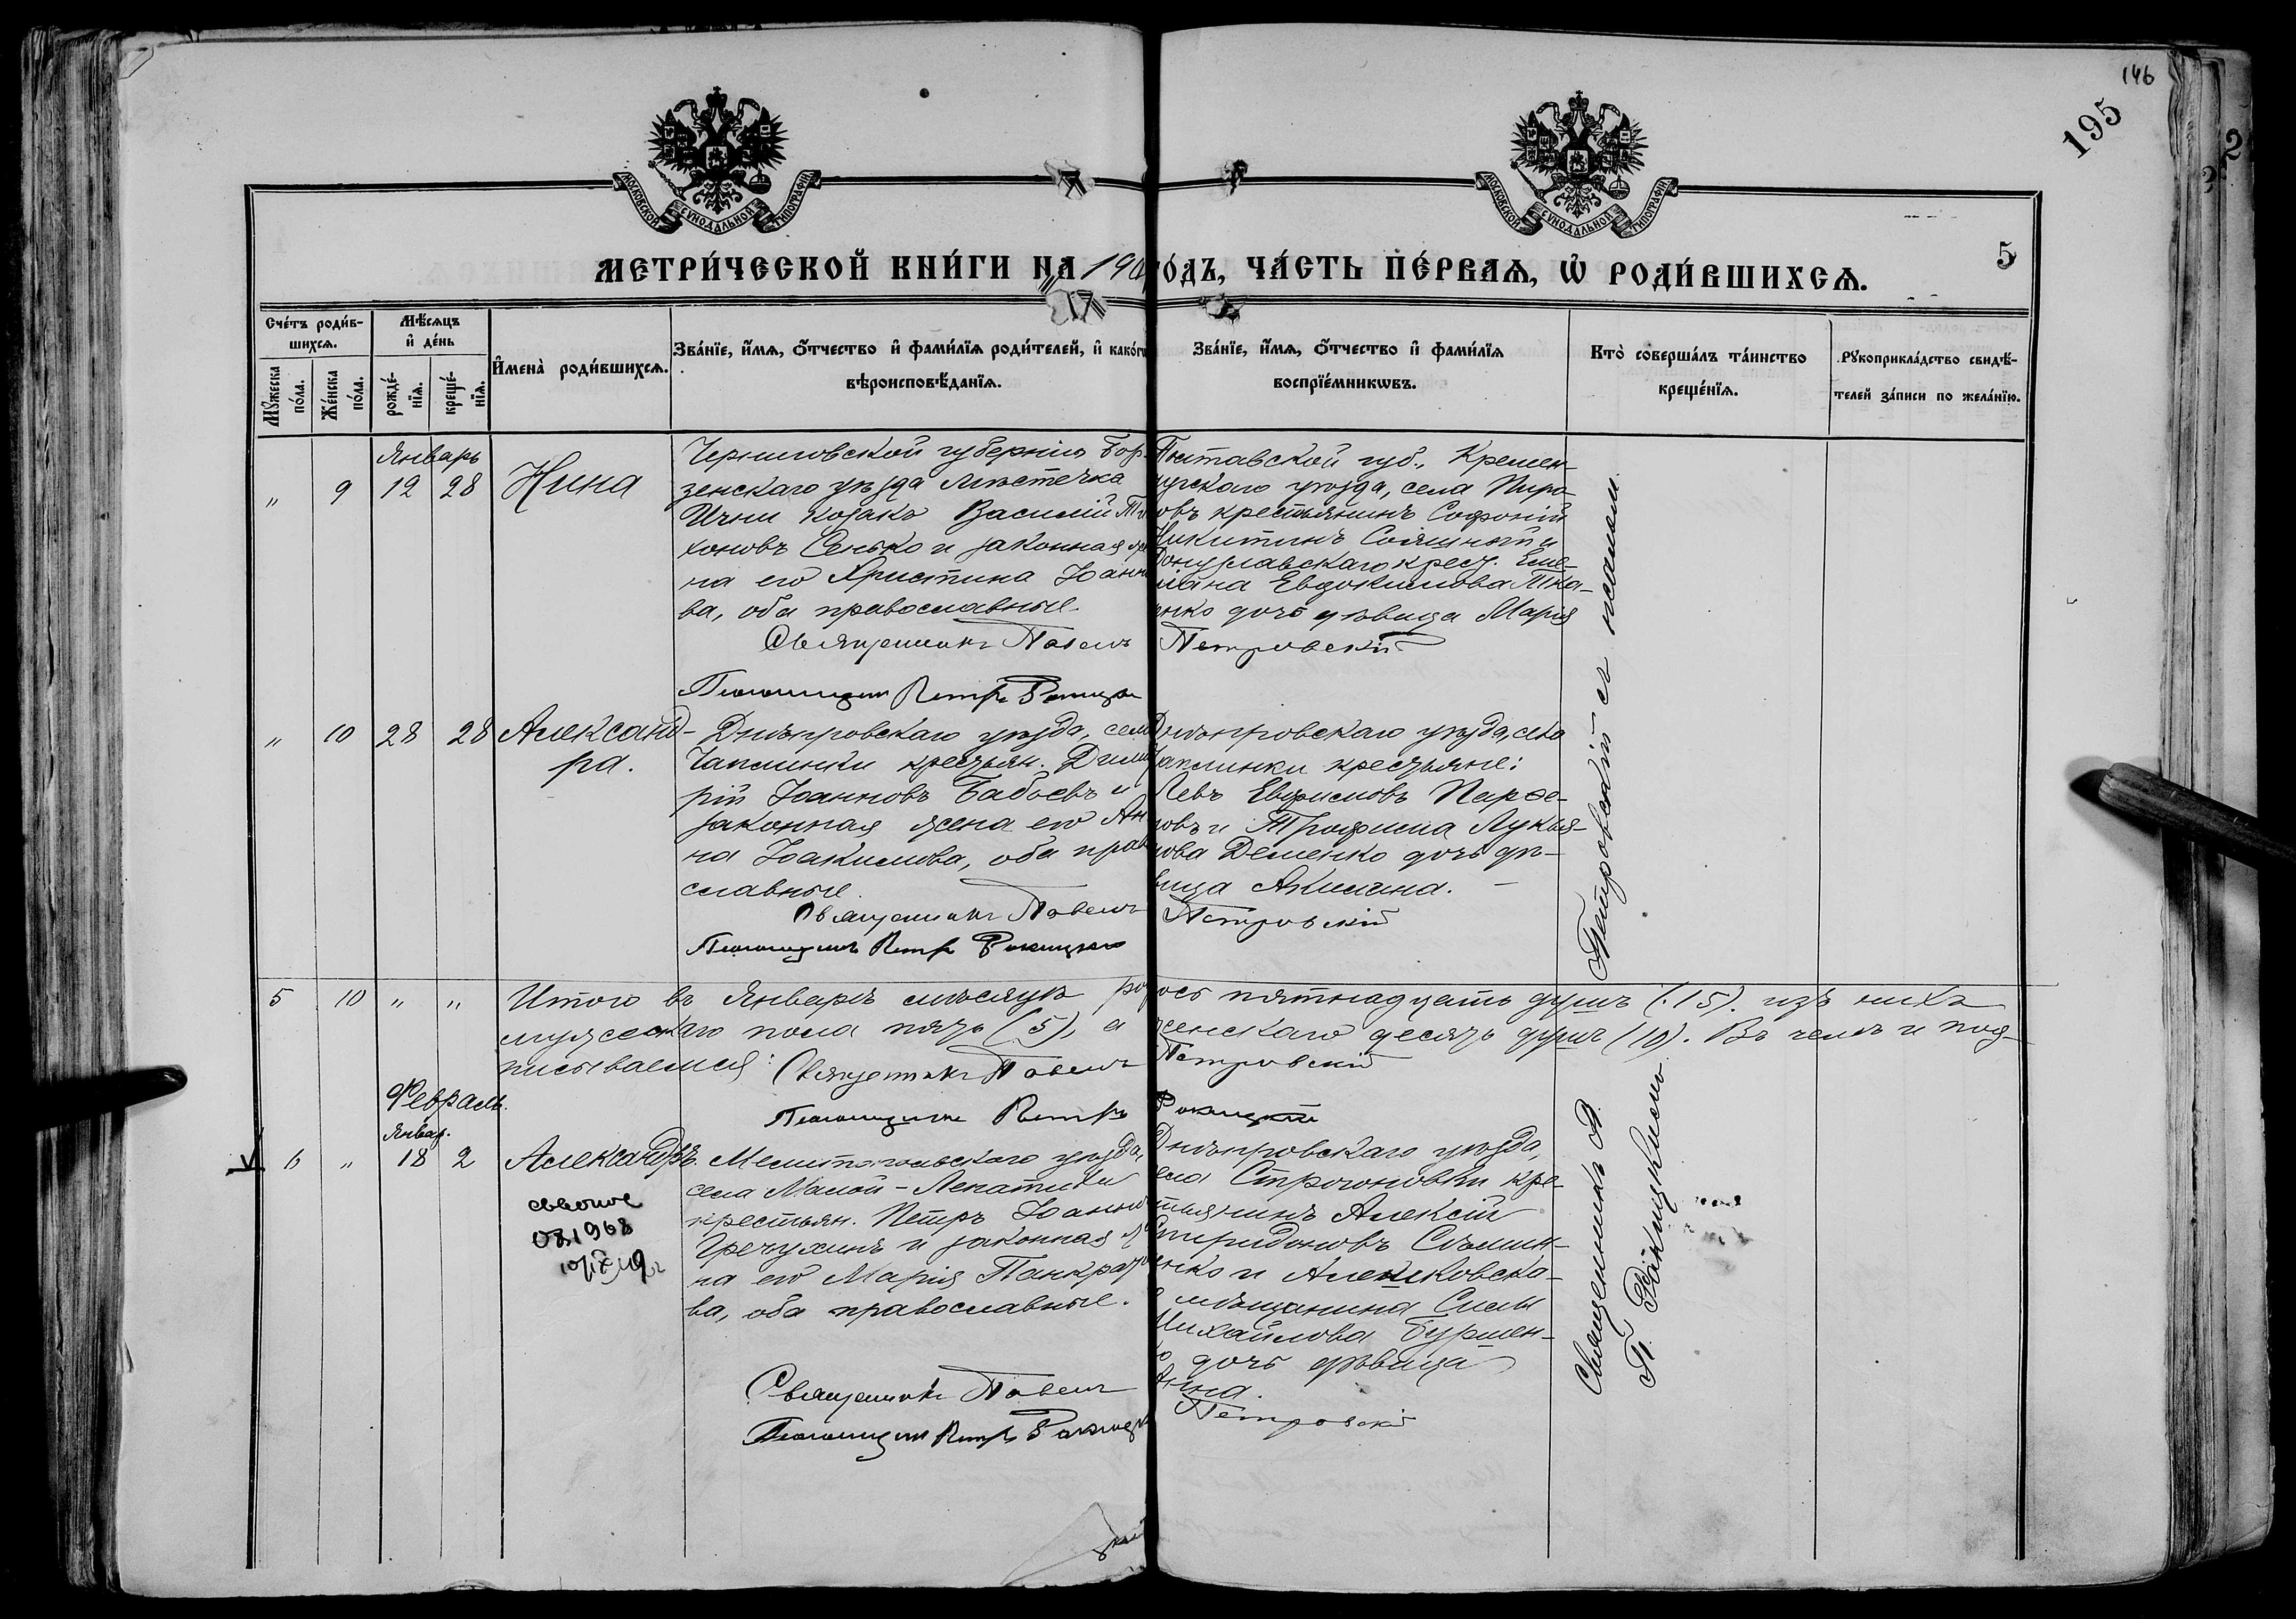 146
195
МОСКОВСКОЙ СѴНОДАЛЬНОЙ ТИПОГРАФІИ
МОСКОВСКОЙ СѴНОДАЛЬНОЙ ТИПОГРАФІИ
5
МЕТРИ́ЧЕСКОЙ КНИ́ГИ НА 190
О́ДЪ, ЧА́СТЬ ПЕ́РВАѦ, Ѡ҆ РОДИ́ВШИХСѦ.
Сче́тъ роди́в-
шихсѧ.
Мꙋжеска по́ла.
Же́нска по́ла.
Мѣ́сѧцъ
и҆ де́нь
рожде́-
нїѧ.
креще́-
нїѧ.
И҆мена̀ роди́вшихсѧ.
Зва́нїе, и҆́мѧ, ѻ҆́тчество и҆ фами́лїѧ роди́телей, и҆ како́г
вѣроисповѣ́данїѧ.
Зва́нїе, и҆́мѧ, ѻ҆́тчество и҆ фами́лїѧ
воспрїе́мникѡвъ.
Кто̀ соверша́лъ та́инство
креще́нїѧ.
Рꙋкоприкла́дство свидѣ́-
телей за́писи по жела́нїю.
Январь
" 9 12 28 Нина
Черниговской губерніи Бор-
зенскаго уѣзда мѣстечка
Ични козакъ Василій Ти
хоновъ Сенько и законная же
на его Христина Іоанно
ва, оба православные.
Священникъ Павелъ
Псаломщикъ Петръ
Полтавской губ., Кремен-
чугскаго уѣзда, села Пиро
овъ крестьянинъ Софоній
Никитинъ и
крест. Еме-
ліана Евдокимова Тка-
енко дочь дѣвица Марія
Петровскій
" 10 28 28 Александ-
ра.
Днѣпровскаго уѣзда, села
Чаплинки крестьян. Димит
рій Іоанновъ Бабьевъ и
законная жена его Ан
на Іоакимова, оба право
славные.
Священникъ Павелъ
Псаломщикъ Петръ Рокицкій
Днѣпровскаго уѣзда, села
Чаплинки крестьяне:
Левъ Евфимовъ Парѳе-
новъ и Трофима Лукья-
нова Деменко дочь дѣ-
вица Акилина.
Петровскій
Петровскій съ псалом.
5 10 " " Итого въ Январѣ мѣсяцѣ ро
дось пятнадцать душъ (15). изъ нихъ
мужескаго пола пять (5), а
женскаго десять душъ (10). Въ чемъ и под-
писываемся: Священникъ Павелъ
Петровскій
Псаломщикъ Петръ
Рокицкій
Февраль.
Январ.
6 " 18 2 Александръ.
1968
Мелитопольскаго уѣзда,
села Малой-Лепатихи
крестьян. Петръ Іоанно
Гречухинъ и законная же
на его Марія Панкратьо
ва, оба православные.
Священникъ Павелъ
Псаломщикъ Петръ Рокицк
Днѣпровскаго уѣзда,
села Строгоновки кре-
стьянинъ Алексій
Спиридоновъ Сѣмин-
енко и Алешковска-
мѣщанина Силы
Михайлова Бурмен-
о дочь дѣвица
Анна.
Петровскій
Священникъ П.
П. Рокицкимъ